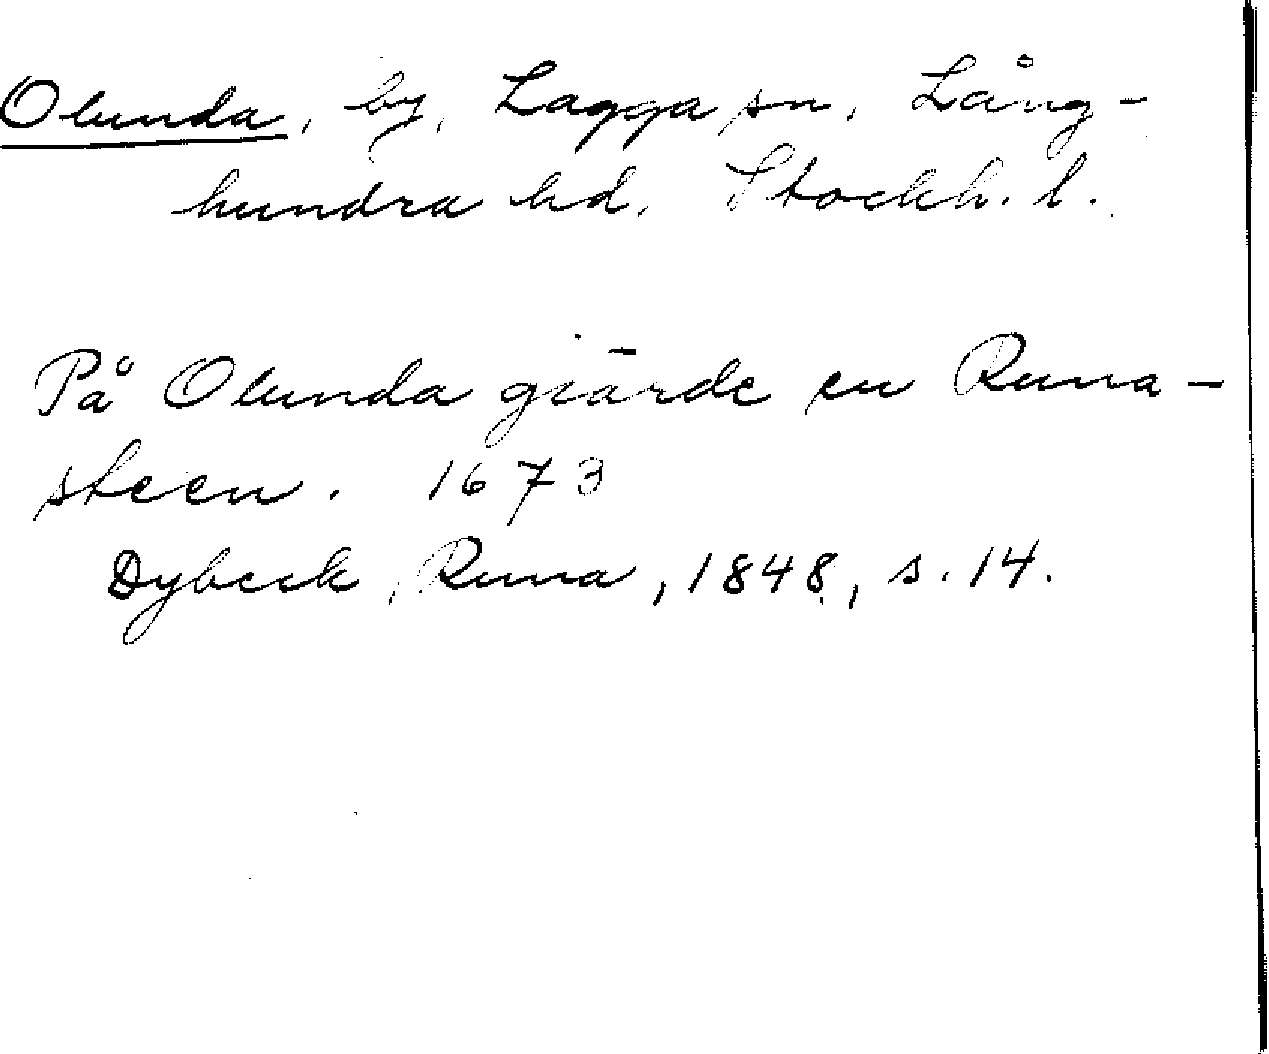 Olunda, by, Lagga sn, Lång-
hundra hd, Stockh. l.
På Olunda giärde en Runa-
steen. 1673
Dybeck, Runa, 1848, s. 14.